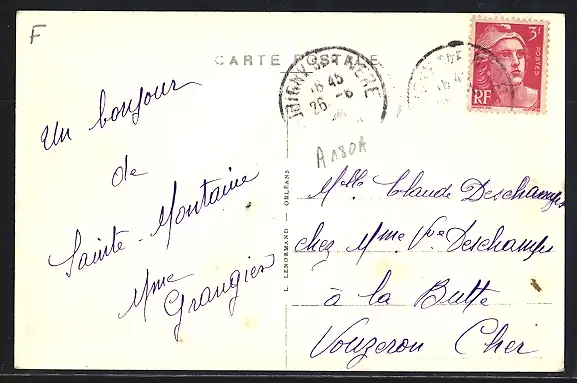 F
CARTE POSTALE
16 45
26 - 6
3F
POSTES
RF
A180A
Un bonjour
de
Sainte-Montaine
Mme
Grangier
L. LENORMAND — ORLÉANS
Melle Claude Deschamps
chez Mme Vve Deschamps
à la Butte
Vouzeron Cher